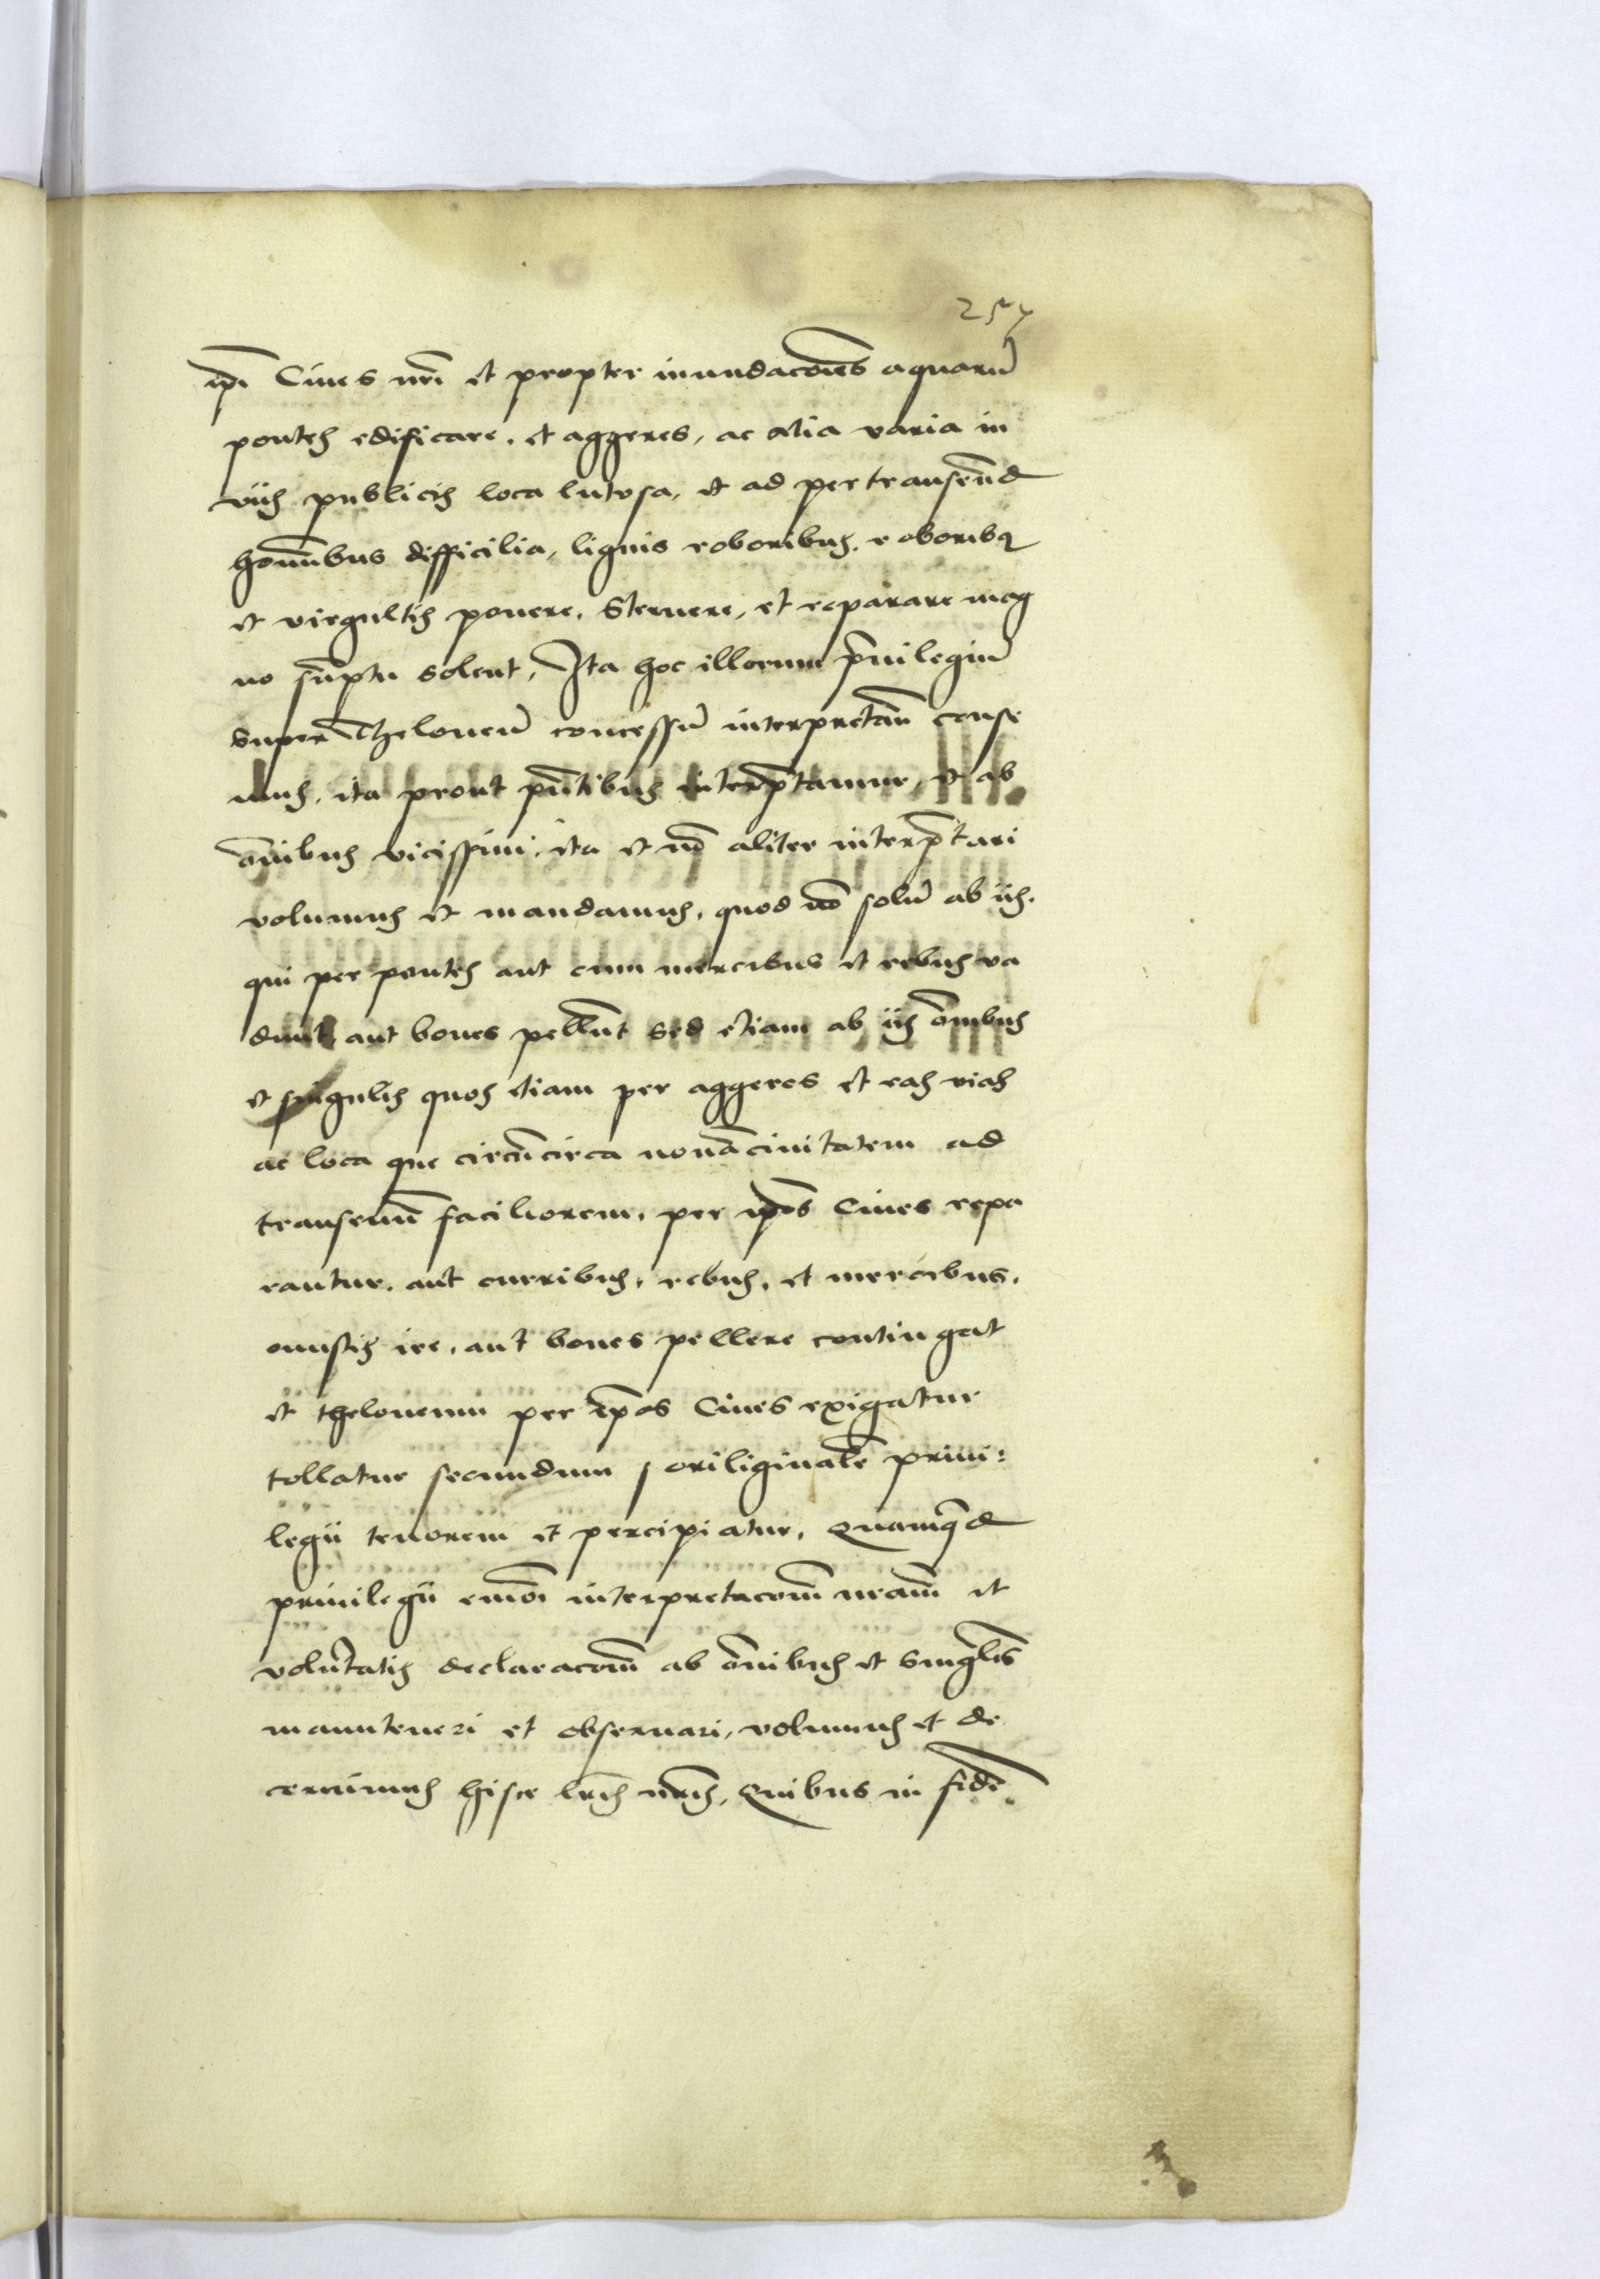 257
ipi Ciues nri et propter inundacoes aquaru
pontes edificare, et aggeres, ac alia varia in
viis publicis loca lutosa, et ad pertranseund
hominbus difficilia, lignis roboribus, roboribq
et virgultis ponere, Sternere, et reparare mag
no suptu solent, Ita hoc illorum priuilegiu
super Theloneu concessu interpretan cense
mus, ita prout pntibus interptamur, et ab
omibus vicissim, ita et no aliter interptari
volumus et mandamus, quod no solu ab iis,
qui per pontes aut cum mercibus et rebus va
dunt aut boues pellunt sed etiam ab iis omibus
et singulis quos etiam per aggeres et eas vias
ac loca que circucirca nona ciuitatem ad
transeum faciliorem, per ipos Ciues repa
rantur, aut curribus, rebus, et mercibus,
onustis ire, aut boues pellere contingat
et thelonenm per ipos Ciues exigatur
tollatur secundum originale priui:
legii tenorem et percipiatur, Quamqd
priuilegii interpretacom nram et
voluntatis declaracom ab omibus et singlis
manuteneri et obseruari, volumus et de
cernimus hisce lris nris, Quibus in fide